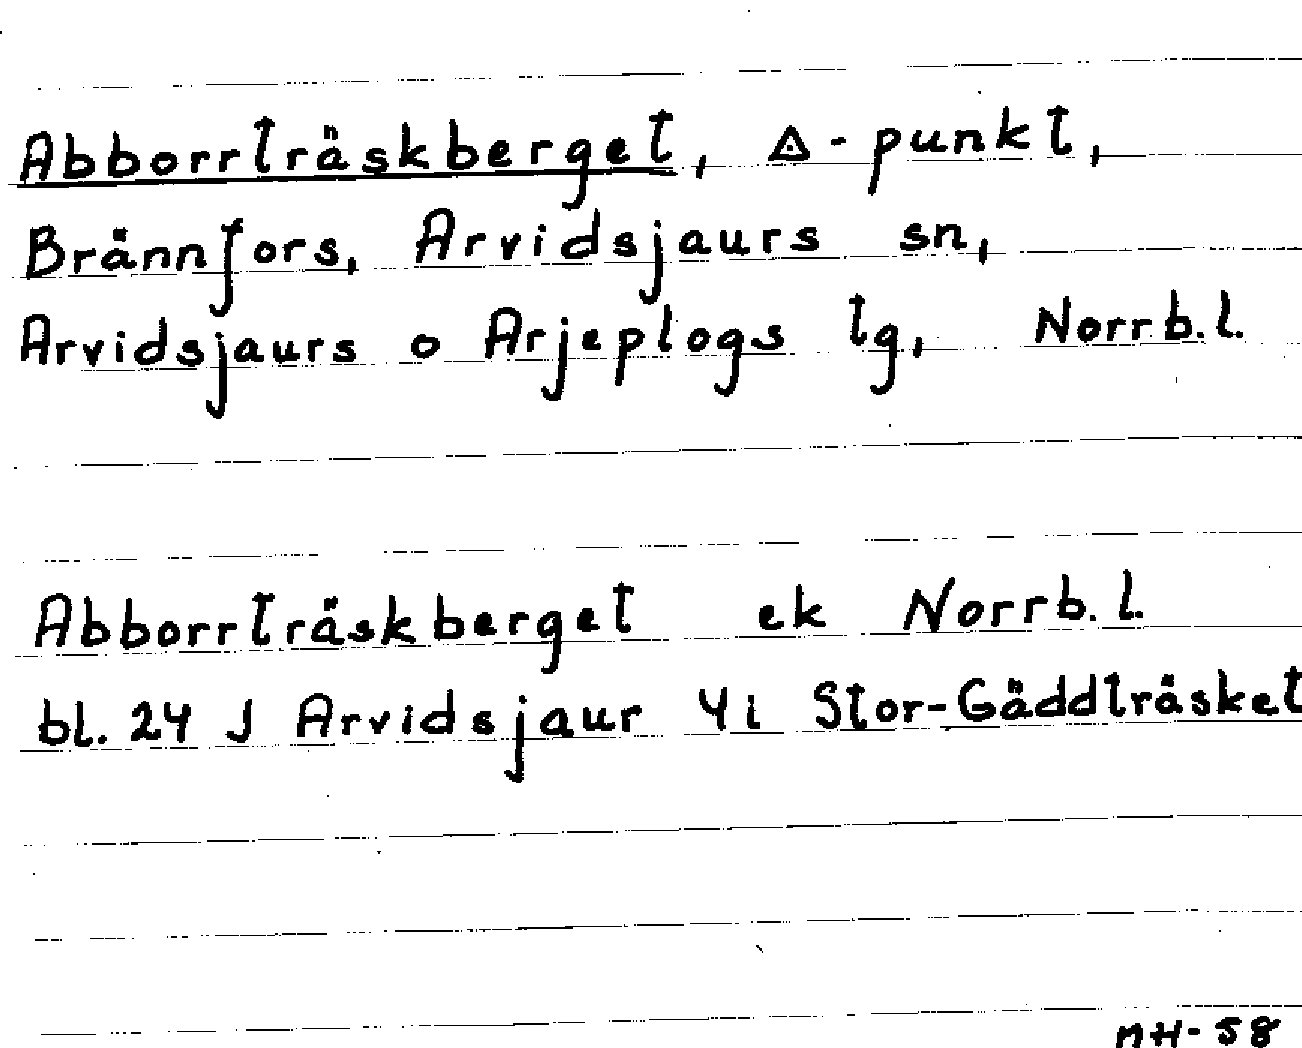 Abborrträskberget, △-punkt,
Brännfors, Arvidsjaurs sn,
Arvidsjaurs o Arjeplogs lg, Norrb.l.
Abborrträskberget ek Norrb.l.
bl. 24 J Arvidsjaur 4i Stor-Gäddträsket
MH-58